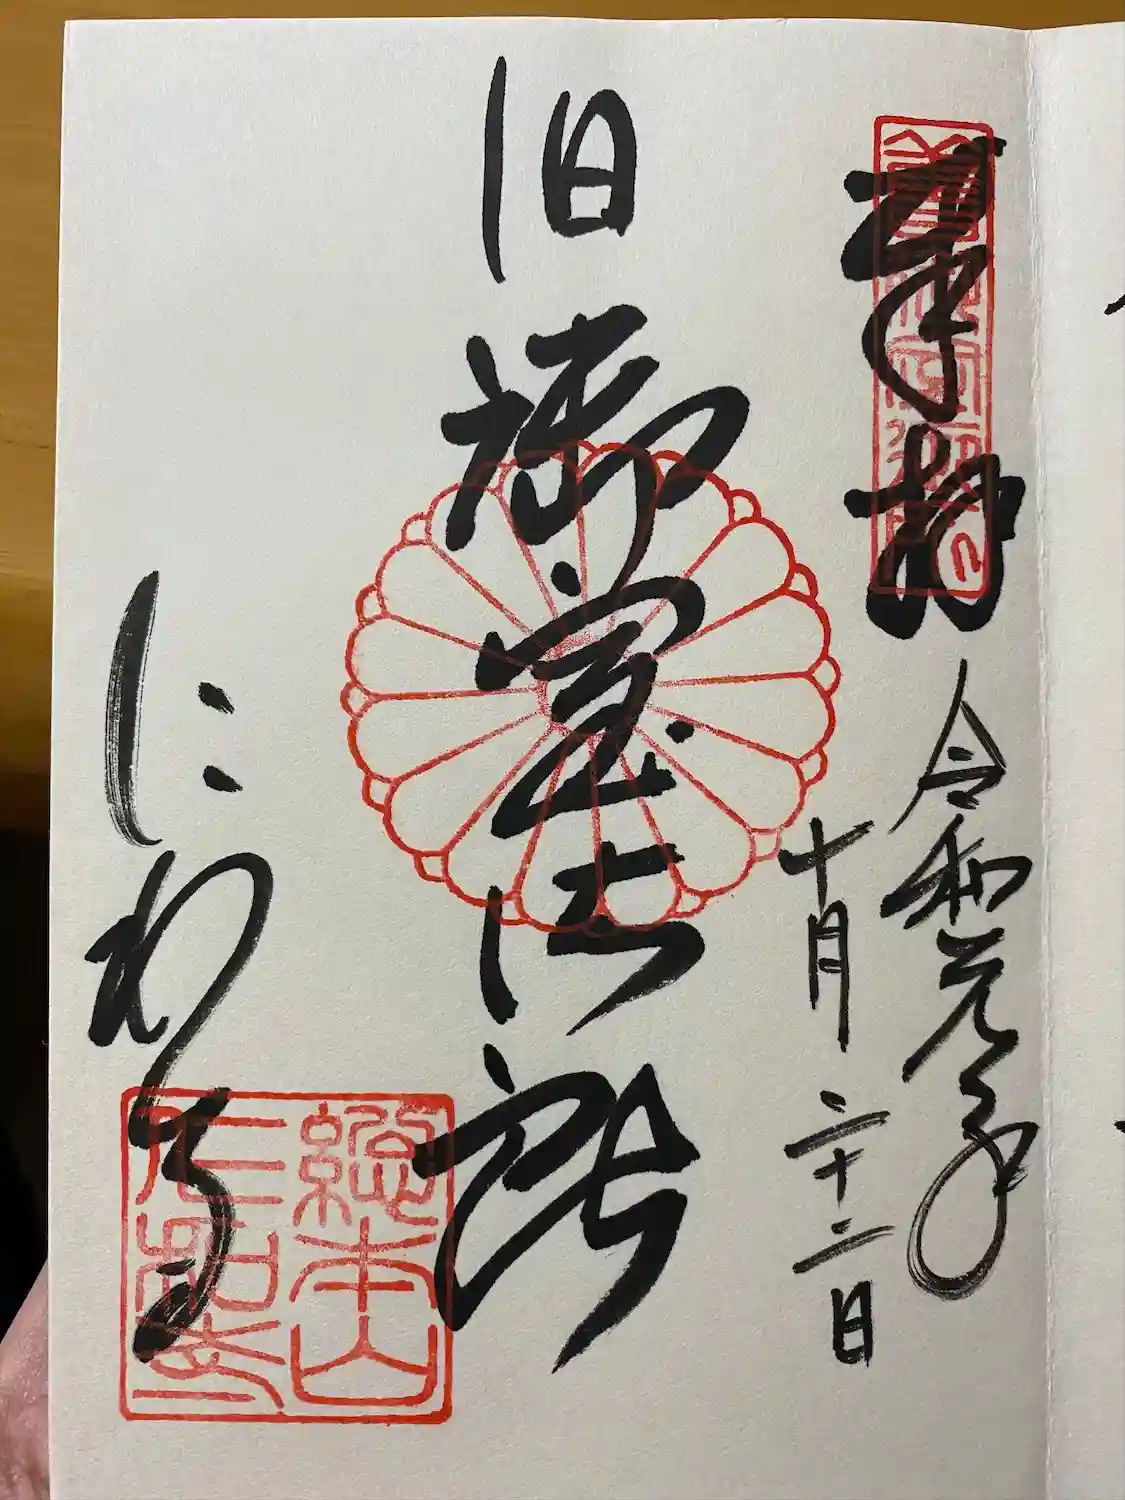 奉拝
令和元年
十月二十二日
旧御室御所
仁和寺
総本山
仁和寺